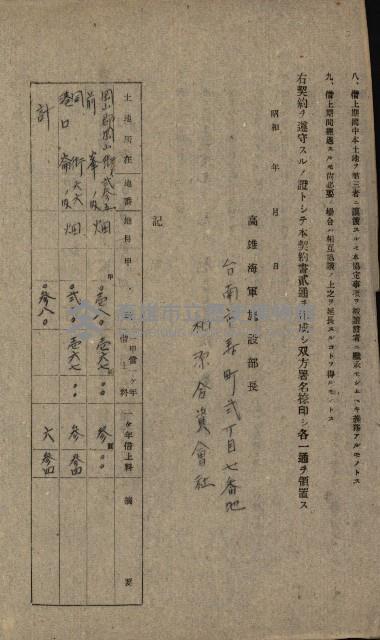 八、借上期間中本土地ヲ第三者ニ讓渡スルモ本協定事項ヲ被讓渡者ニ繼承セシムヘキ義務アルモノトス
九、借上期間經過スルモ尚必要ノ場合ハ相互協議ノ上之ヲ延長スルコトヲ得ルモノトス
右契約ヲ遵守スルノ證トシテ本契約書貳通ヲ作成シ双方署名捺印シ各一通ヲ領置ス
昭和 年 月 日
高雄海軍施設部長
台南市壽町弍丁目七番地
和源合資會社
記
土地所在 地番 地目 甲 一甲當一ケ年借上料 一ケ年借上料 摘要
岡山郡岡山街 畑
前峯 壱八〇 壱六七 参〇〇
同 街 畑
港口崙 弍〇〇 壱六七 参 参四
計 参八〇 六 参四
高雄市立歷史博物館